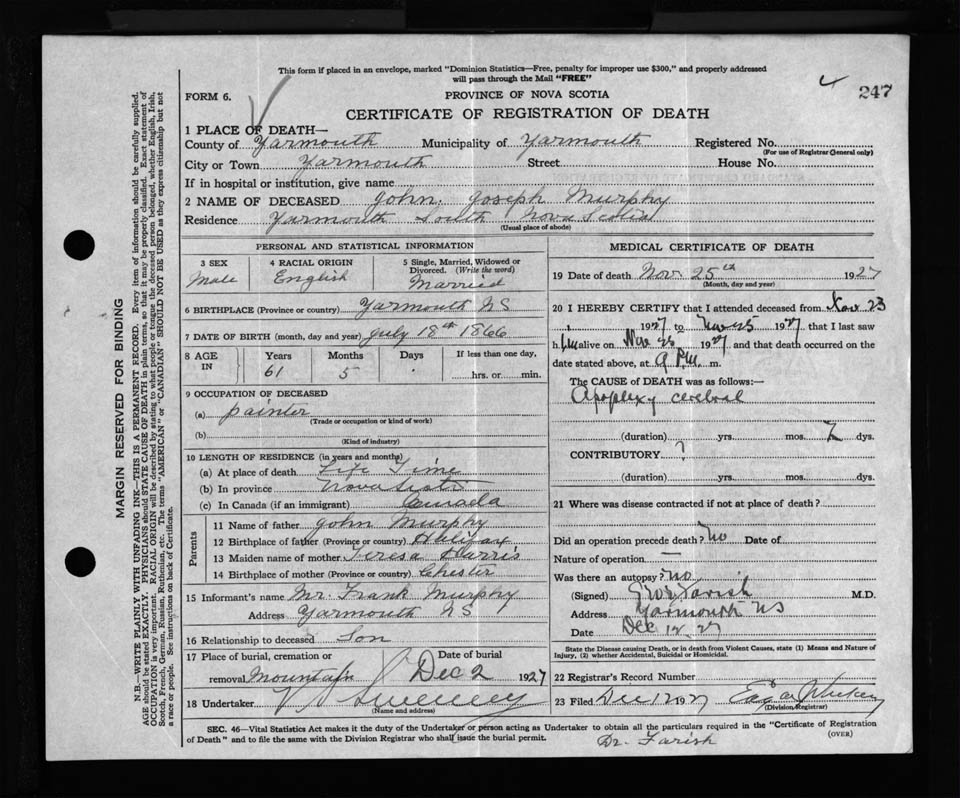 This form if placed in an envelope, marked "Dominion Statistics—Free, penalty for improper use $300," and properly addressed
will pass through the Mail "FREE"
247
FORM 6.
PROVINCE OF NOVA SCOTIA
CERTIFICATE OF REGISTRATION OF DEATH
1 PLACE OF DEATH—
County of Yarmouth Municipality of Yarmouth Registered No.
(For use of Registrar General only)
City or Town Yarmouth Street House No.
If in hospital or institution, give name
2 NAME OF DECEASED John Joseph Murphy
Residence Yarmouth South Nova Scotia
(Usual place of abode)
PERSONAL AND STATISTICAL INFORMATION
3 SEX 4 RACIAL ORIGIN 5 Single, Married, Widowed or
Divorced. (Write the word)
Male English Married
6 BIRTHPLACE (Province or country) Yarmouth NS
7 DATE OF BIRTH (month, day and year) July 18th 1866
8 AGE IN Years Months Days If less than one day,
61 5 hrs. or min.
9 OCCUPATION OF DECEASED
(a) painter
(Trade or occupation or kind of work)
(b)
(Kind of industry)
10 LENGTH OF RESIDENCE (in years and months)
(a) At place of death Life Time
(b) In province Nova Scotia
(c) In Canada (if an immigrant) Canada
Parents
11 Name of father John Murphy
12 Birthplace of father (Province or country) Halifax
13 Maiden name of mother Teresa Harris
14 Birthplace of mother (Province or country) Chester
15 Informant's name Mr. Frank Murphy
Address Yarmouth NS
16 Relationship to deceased Son
17 Place of burial, cremation or Date of burial
removal Mountain Dec 2 1927
18 Undertaker Sweeney
(Name and address)
MEDICAL CERTIFICATE OF DEATH
19 Date of death Nov. 25th 1927
(Month, day and year)
20 I HEREBY CERTIFY that I attended deceased from Nov 23
1927 to Nov 25 1927 that I last saw
him alive on Nov 25 1927 and that death occurred on the
date stated above, at 9 P.M. m.
The CAUSE OF DEATH was as follows:—
Apoplexy cerebral
(duration) yrs. mos. 2 dys.
CONTRIBUTORY ?
(duration) yrs. mos. dys.
21 Where was disease contracted if not at place of death?
Did an operation precede death? No Date of
Nature of operation —
Was there an autopsy? no
(Signed) Farish M.D.
Address Yarmouth NS
Date Dec 12 27
State the Disease causing Death, or in death from Violent Causes, state (1) Means and Nature of
Injury, (2) whether Accidental, Suicidal or Homicidal.
22 Registrar's Record Number
23 Filed Dec 12 1927 Edgar
(Division Registrar)
SEC. 46—Vital Statistics Act makes it the duty of the Undertaker or person acting as Undertaker to obtain all the particulars required in the "Certificate of Registration
of Death" and to file the same with the Division Registrar who shall issue the burial permit.
(OVER)
Dr. Farish
MARGIN RESERVED FOR BINDING
N.B.—WRITE PLAINLY WITH UNFADING INK—THIS IS A PERMANENT RECORD. Every item of information should be carefully supplied.
AGE should be stated EXACTLY. PHYSICIANS should STATE CAUSE OF DEATH in plain terms, so that it may be properly classified. Exact statement of
OCCUPATION is very important. RACIAL ORIGIN will be described by stating to what people or tongue the deceased person belonged, whether English, Irish,
Scotch, French, German, Russian, Ruthenian, etc. The terms "AMERICAN" or "CANADIAN" SHOULD NOT BE USED as they express citizenship but not
a race or people. See instructions on back of Certificate.